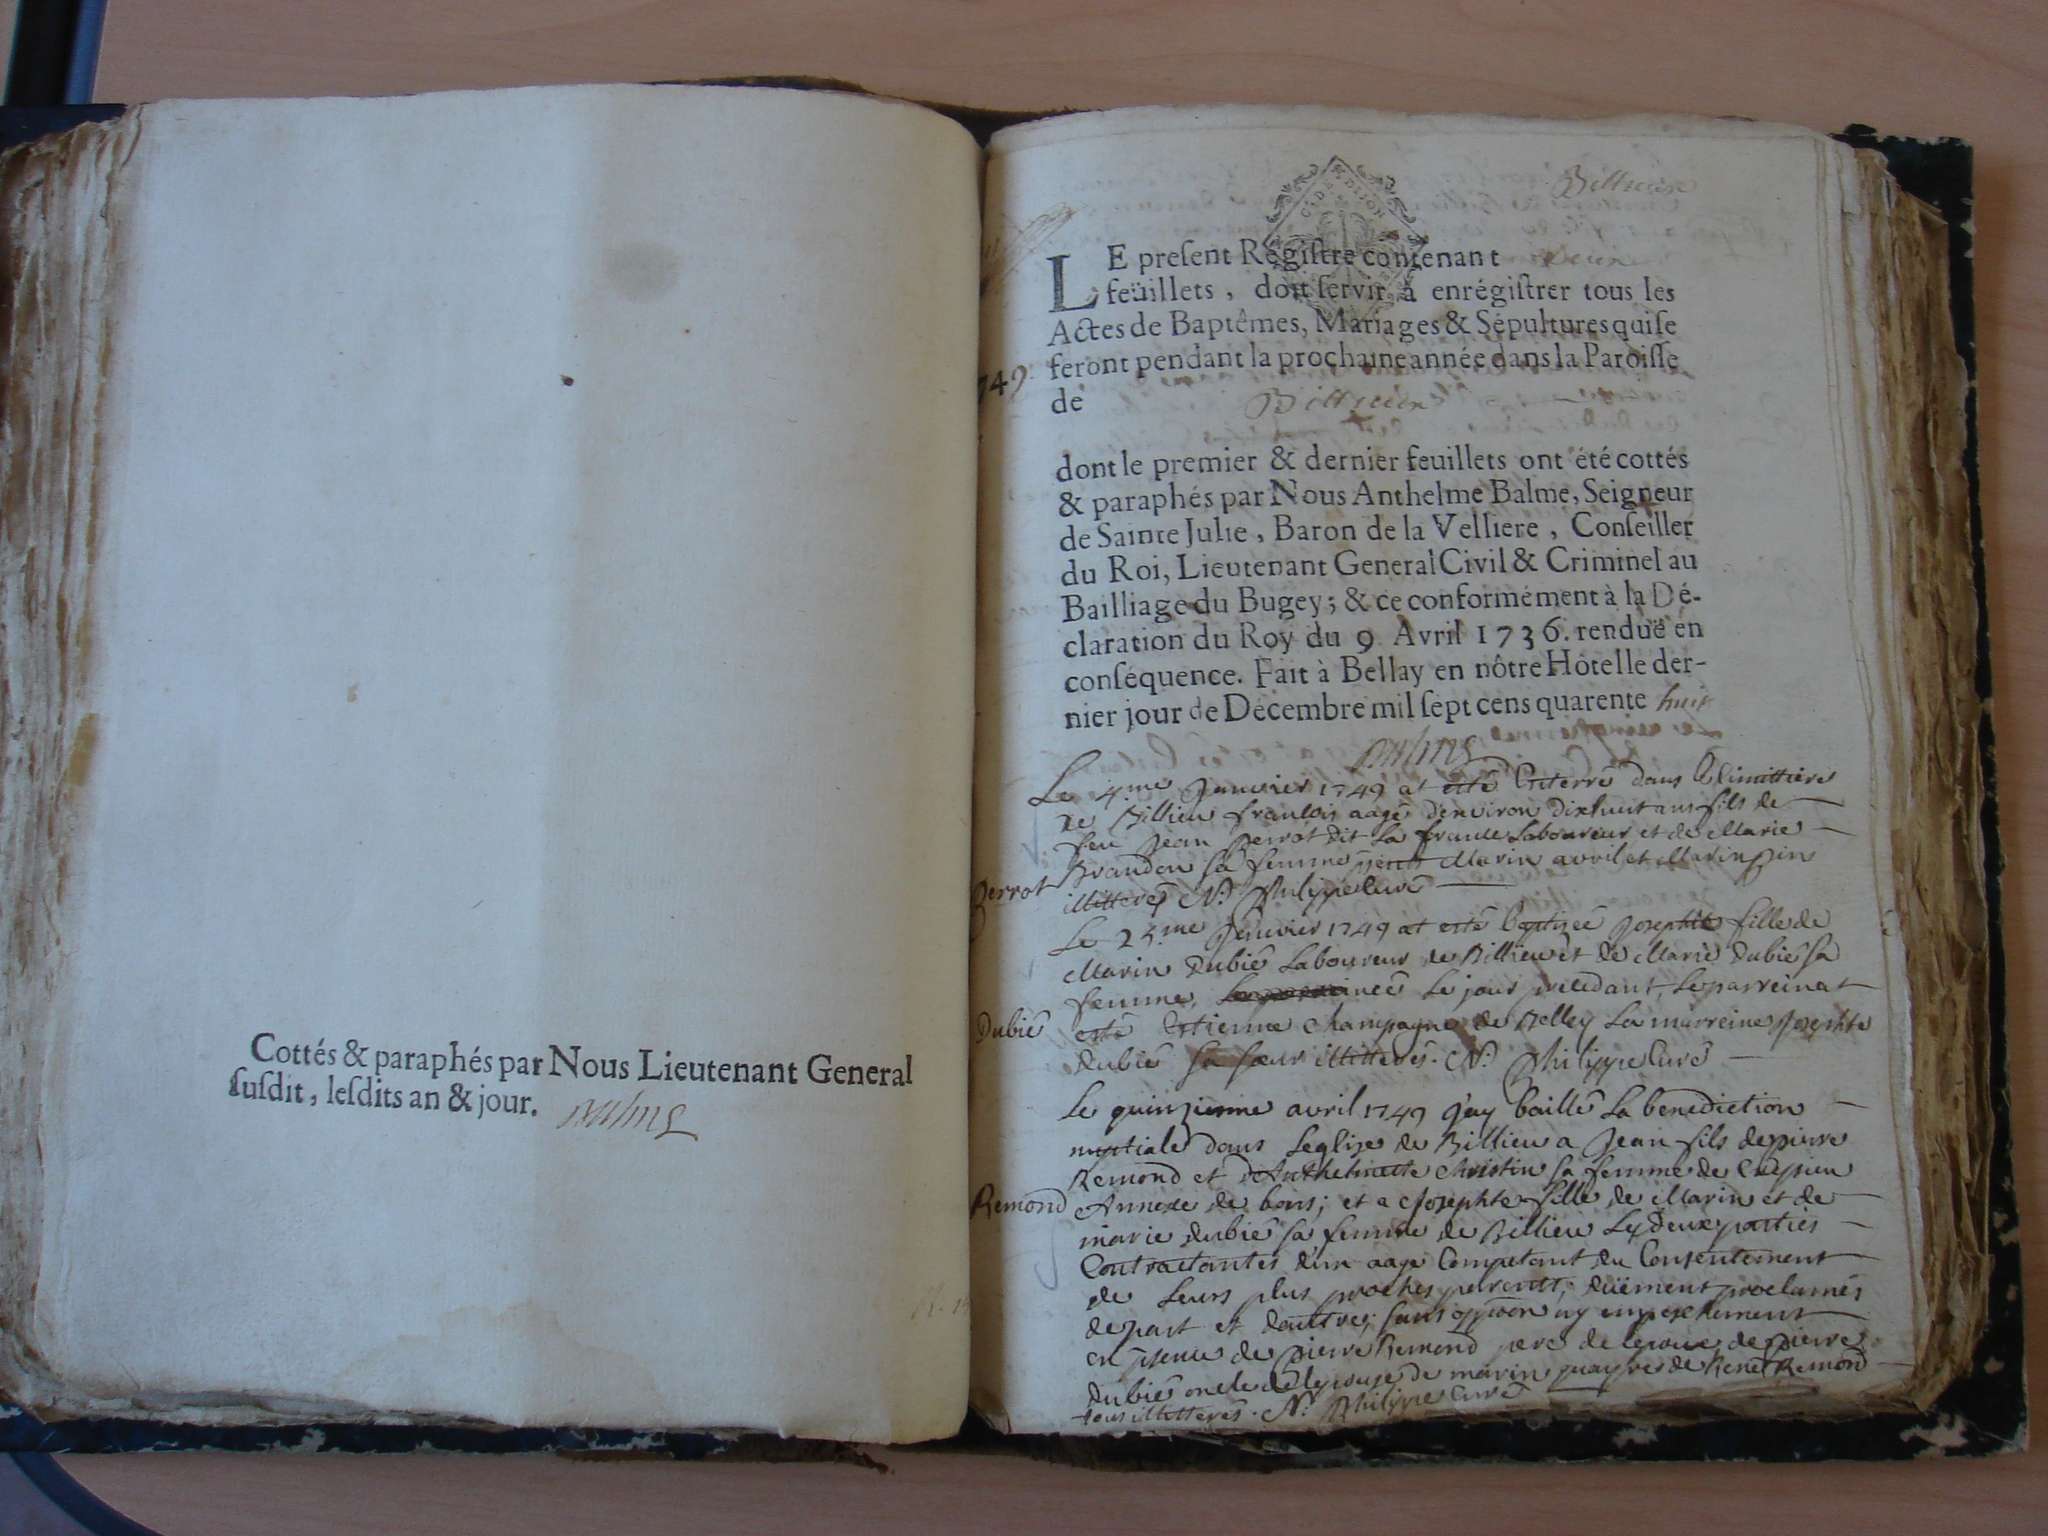 Cottés & paraphés par Nous Lieutenant General
ſuſdit, leſdits an & jour.
Billieu
LE preſent Régiſtre contenant
feüillets, doit ſervir à enrégiſtrer tous les
Actes de Baptêmes, Mariages & Sépultures qui ſe
feront pendant la prochaine année dans la Paroiſſe
749
de Billieu
dont le premier & dernier feuillets ont été cottés
& paraphés par Nous Anthelme Balme, Seigneur
de Sainte Julie, Baron de la Velliere, Conſeiller
du Roi, Lieutenant General Civil & Criminel au
Bailliage du Bugey; & ce conformément à la Dé-
claration du Roy du 9 Avril 1736. renduë en
conſéquence. Fait à Bellay en nôtre Hôtel le der-
nier jour de Décembre mil ſept cens quarente huit
Le 4.me Janvier 1749 at esté Enterré dans le
de Billieu francois aagé denviron dixhuit ans fils de
feu Jean Perrot dit La france Laboureur et de Marie
Brandon sa femme Marin avril et Marin pin
Perrot
illitterés N: Philippe Curé
Le 25.me Janvier 1749 at esté baptisée Josephte fille de
Marin Dubié Laboureur de Billieu et de Marie Dubié sa
femme, née Le jour precedant, Le parrein at
Dubié
esté Estienne Champagne de Belley La marreine Josephte
Dubié sa soeur illitterés. N: Philippe Curé
Le quinzieme avril 1749 j'ay baillé La benediction
nuptiale dans Leglise de Billieu a Jean fils de pierre
Remond et d'Anthelmette Christin sa femme de
Remond
Annexe de bons; et a Josephte fille de Marin et de
marie Dubié sa femme de Billieu Les deux parties
Contractantes d'un aage Competant du Consentement
de Leurs plus proches parents; duëment proclamés
de part et dautre; sans oppoon ny empeschement
en pñence de pierre Remond pere de lepoux de pierre
Dubié oncle de lepouse de marin de René Remond
tous illitterés. N: Philippe Curé